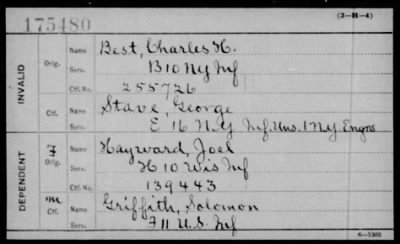 175480
(3-H-4)
INVALID
Orig. Name Best, Charles H.
Serv. B 10 Ny Inf
Ctf. No. 255726
Ctf. Name Stave, George
Serv. E 16 N.Y Inf. Uns. 1 Ny Engrs
DEPENDENT
Orig. Name Hayward, Joel
Serv. H 10 Wis Inf
Ctf. No. 139443
Ctf. Name Griffith, Solomon
Serv. F 11 U.S. Inf